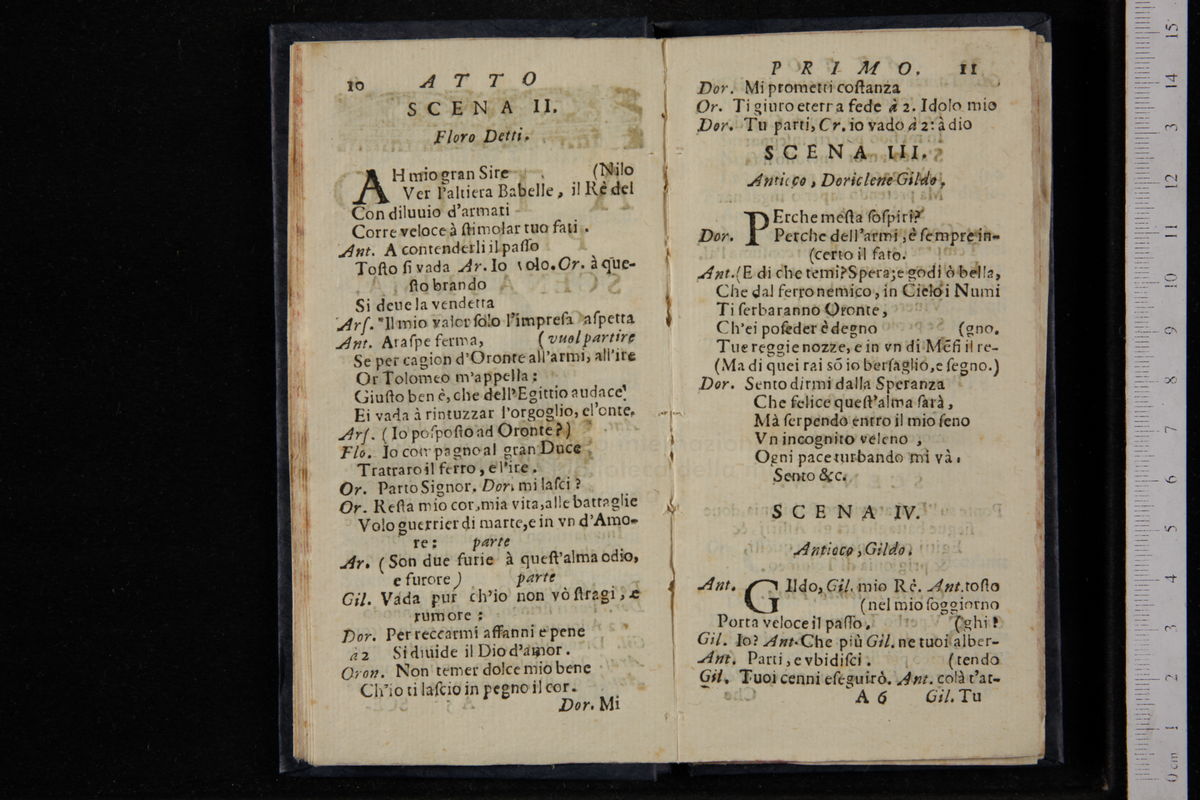 10 ATTO
SCENA II.
Floro Detti.
AH mio gran Sire (Nilo
Ver l'altiera Babelle, il Rè del
Con diluuio d'armati
Corre veloce à ſtimolar tuo fati.
Ant. A contenderli il paſſo
Toſto ſi vada Ar. Io volo. Or. à que-
ſto brando
Si deue la vendetta
Arſ. Il mio valor ſolo l'impreſa aſpetta
Ant. Araſpe ferma, (vuol partire
Se per cagion d'Oronte all'armi, all'ire
Or Tolomeo m'appella:
Giuſto ben è, che dell'Egittio audace
Ei vada à rintuzzar l'orgoglio, el'onte.
Arſ. (Io poſpoſto ad Oronte?)
Flo. Io compagno al gran Duce
Trattraro il ferro, e l'ire.
Or. Parto Signor. Dor. mi laſci?
Or. Reſta mio cor, mia vita, alle battaglie
Volo guerrier di marte, e in vn d'Amo-
re: parte
Ar. (Son due furie à queſt'alma odio,
e furore) parte
Gil. Vada pur ch'io non vò ſtragi, e
rumore:
Dor. Per reccarmi affanni e pene
à 2 Si diuide il Dio d'amor.
Oron. Non temer dolce mio bene
Ch'io ti laſcio in pegno il cor.
Dor. Mi
PRIMO. 11
Dor. Mi prometti coſtanza
Or. Ti giuro eterra fede à 2. Idolo mio
Dor. Tu parti, Cr. io vado à 2: à dio
SCENA III.
Antioco, Doriclene Gildo.
PErche meſta ſoſpiri?
Dor. Perche dell'armi, è ſempre in-
(certo il fato.
Ant. (E di che temi? Spera; e godi ò bella,
Che dal ferro nemico, in Cielo i Numi
Ti ſerbaranno Oronte,
Ch'ei poſeder è degno (gno.
Tue reggie nozze, e in vn di Mẽfi il re-
(Ma di quei rai sõ io berſaglio, e ſegno.)
Dor. Sento dirmi dalla Speranza
Che felice queſt'alma ſarà,
Mà ſerpendo entro il mio ſeno
Vn incognito veleno,
Ogni pace turbando mi và.
Sento &c.
SCENA IV.
Antioco, Gildo.
Ant. GIldo, Gil. mio Rè. Ant. toſto
(nel mio ſoggiorno
Porta veloce il paſſo. (ghi?
Gil. Io? Ant. Che più Gil. ne tuoi alber-
Ant. Parti, e vbidiſci. (tendo
Gil. Tuoi cenni eſeguirò. Ant. colà t'at-
A 6 Gil. Tu